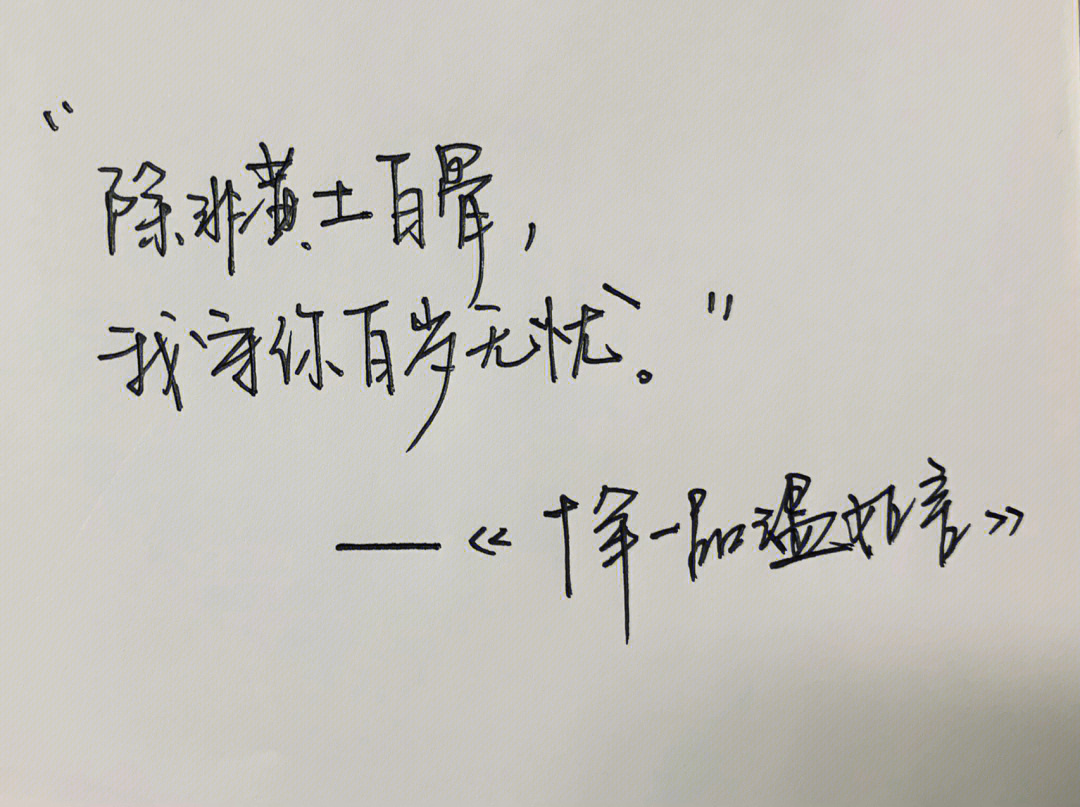 “除非黄土白骨,
我守你百岁无忧。”
——《十年一品温如言》